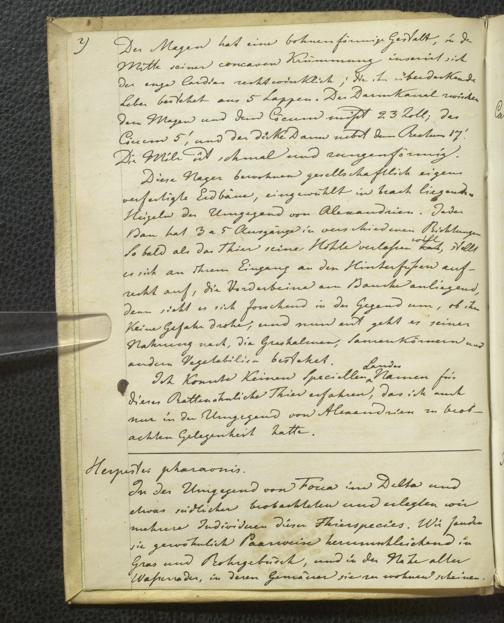 2)
Der Magen hat eine bohnenförmige Gestalt, in der
Mitte seiner concaven Krümmung inserirt sich
der enge Cardias rechtwinklich; die ihn überdeckende
Leber bestehet aus 5 Lappen. Der Darmkanal zwischen
dem Magen und dem Coecum mißt 23 Zoll; das
Coecum 5', und der dicke Darm nebst dem Rectum 17'.
Die Milz ist schmal und zungenförmig.
Diese Nager bewohnen gesellschaftlich eigens
verfertigte Erdbäue, eingewühlt in brach liegenden
Hügeln der Umgegend von Alexandrien. Jeder
Bau hat 3 a 5 Ausgänge in verschiedenen Richtungen
So bald als das Thier seine Höhle verlassen will, stellt
es sich an ihrem Eingang an den Hinterfüssen auf-
recht auf, die Vorderbeine am Bauche anliegend,
dann sieht es sich forschend in der Gegend um, ob ihm
keine Gefahr drohe, und nun erst geht es seiner
Nahrung nach, die Grashalmen, Samenkörnern und
andern Vegetabilien bestehet.
Ich konnte keinen speciellen Landes Namen für
dieses Rattenähnliche Thier erfahren, das ich auch
nur in der Umgegend von Alexandrien zu beob-
achten Gelegenheit hatte.
Herpestes pharaonis.
In der Umgegend von Foua im Delta und
etwas südlicher beobachteten und erlegten wir
mehrere Individuen dieser Thierspecies. Wir fanden
sie gewöhnlich Paarweise herumschleichend in
Gras und Rohrgebüsch, und in der Nähe alter
Wasserräder, in deren Gemäuer sie zu wohnen scheinen.